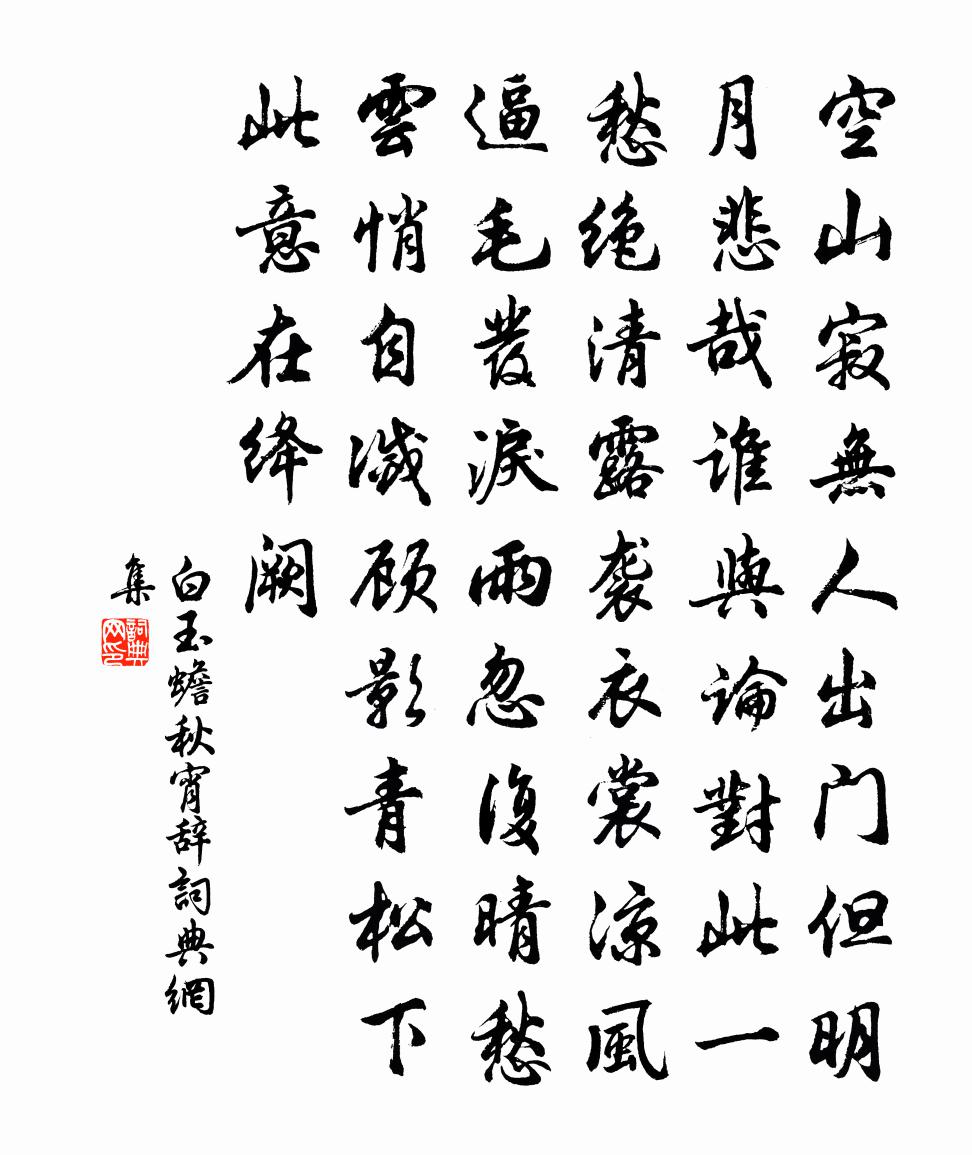 空山寂無人出门但明
月悲哉谁與論對此一
愁绝清露袭衣裳凉風
逼毛發淚雨忽復晴愁
雲悄自滅顾影青松下
此意在绛阙
白玉蟾秋宵辞詞典網
集
詞典
网印